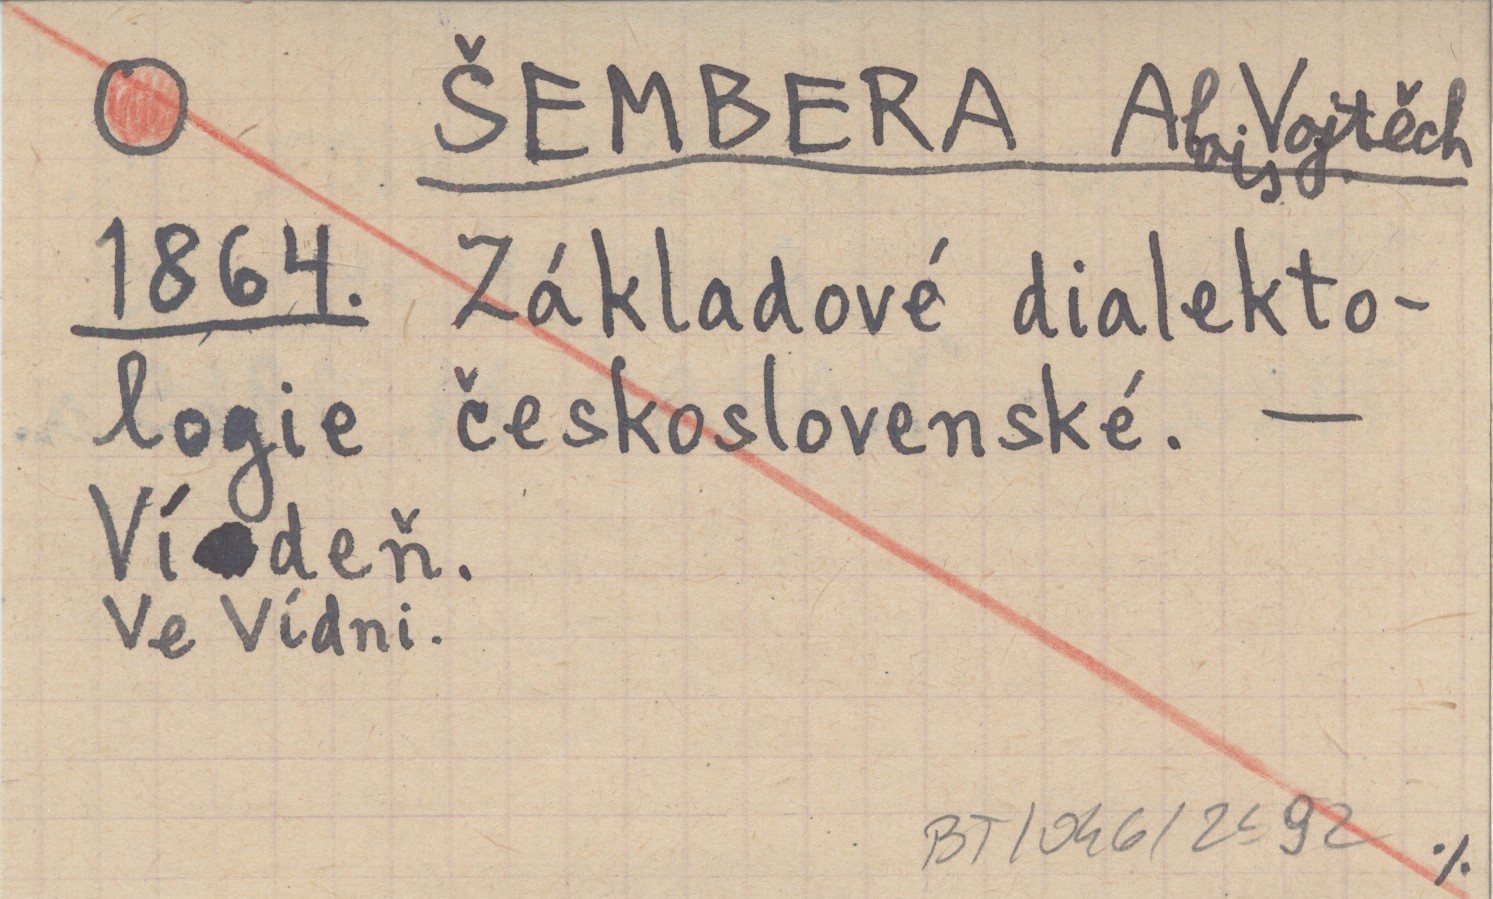 ŠEMBERA Alois Vojtěch
1864. Základové dialekto-
logie československé. —
Vídeň.
Ve Vídni.
BT/046/
./.